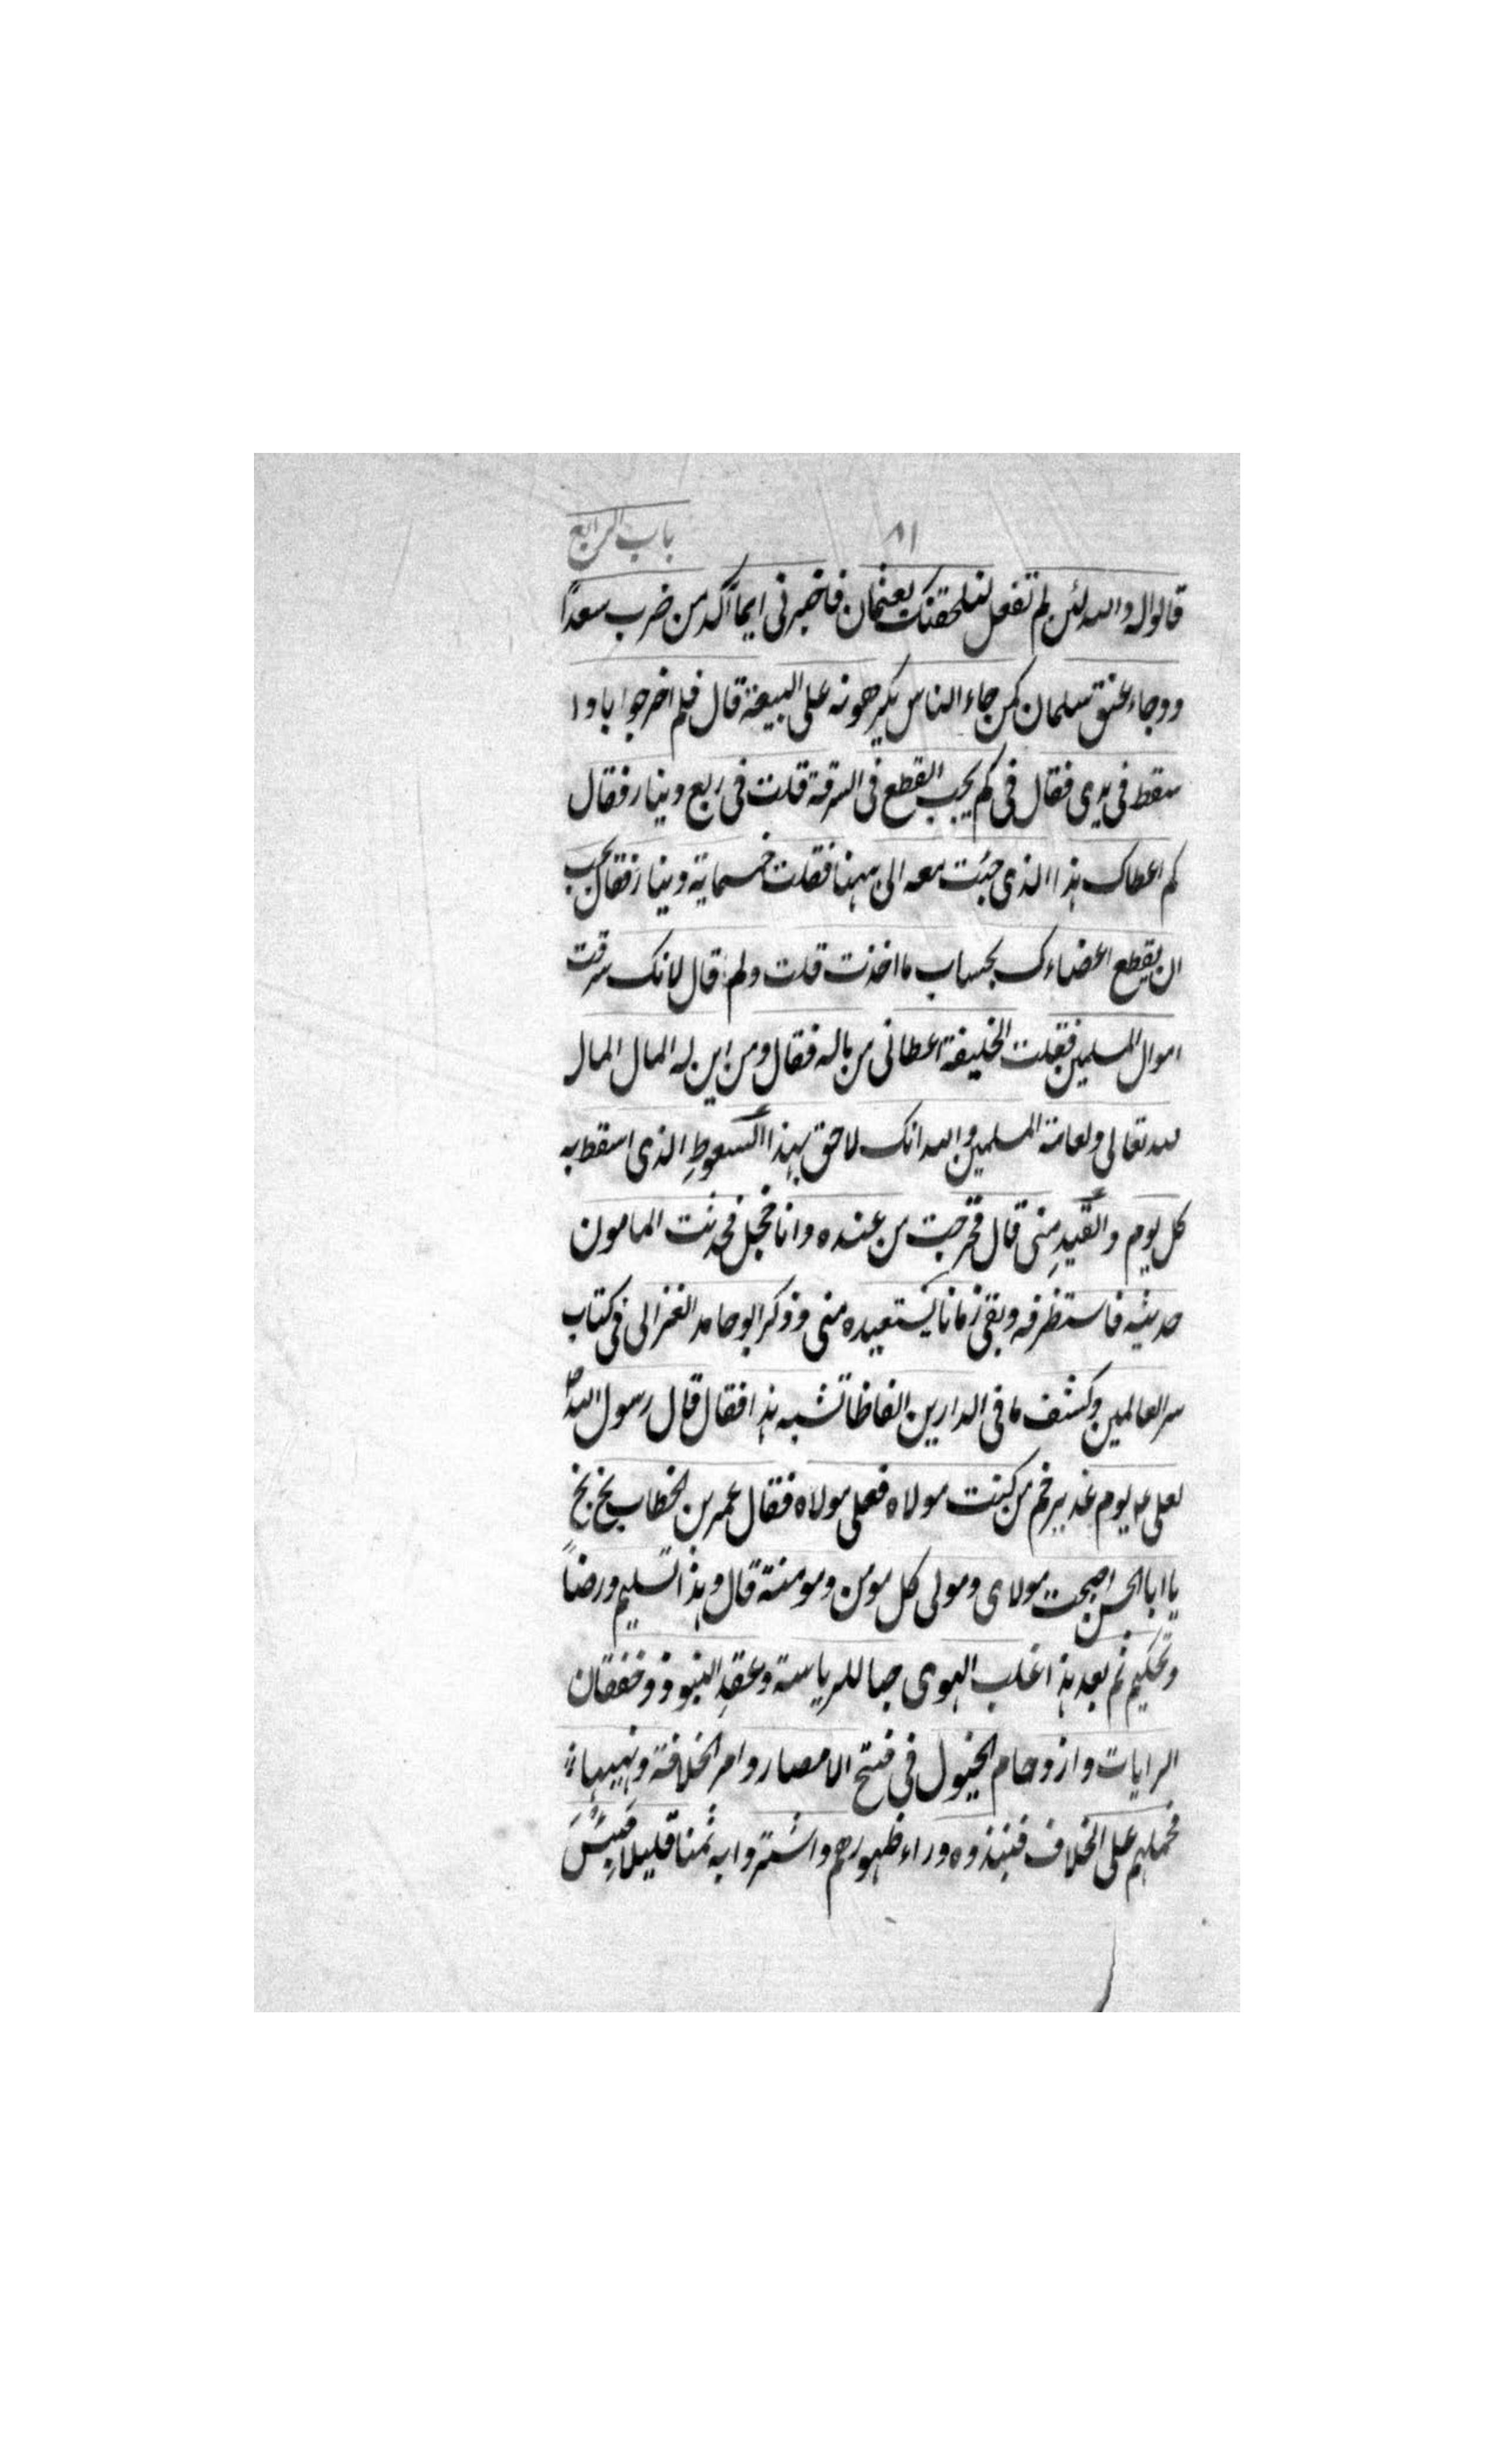 ٨١ باب الرابع
قالوا له والله لئن لم تفعل لنلحقنك بعثمان فاخبرنى ايما آكد من ضرب سعدًا
ووجاء عنق سلمان كمن جاء الناس يكرهونه على البيعة قال فلم اخر جوابا و ا
سقط فى يدى فقال فى كم يجب القطع فى السرقة قلت فى ربع دينار فقال
كم اعطاك هذا الذى جئت معه الى ههنا فقلت خمسماية دينار فقال يجب
ان يقطع اعضاءك بحساب ما اخذت قلت ولم قال لانك سرقت
اموال المسلمين فقلت الخليفة اعطانى من ماله فقال ومن اين له المال المال
لله تعالى ولعامة المسلمين والله انك لاحق بهذا السعوطِ الذى اسقط به
كل يوم والقيدِ منى قال فخرجت من عنده وانا خجل فحدثت المامون
حديثه فاستظرفه وبقى زمانا يستعيده منى وذكر ابو حامد الغزالى فى كتاب
سر العالمين وكشف ما فى الدارين الفاظا تشبه هذا فقال قال رسول اللهؐ
لعلى ع يوم غدير خم من كنت مولاه فعلى مولاه فقال عمر بن الخطاب بخ بخ
يا ابا الحسن اصبحت مولاى ومولى كل مومن ومومنة قال وهذا تسليم ورضاً
وتحكيم ثم بعد هذا غلب الهوى حبا للرياسة وعقدِ البنود وخفقان
الرايات وازدحام الخيول فى فتح الامصار وامر الخلافة ونهيها
فحملهم على الخلاف فنبذوه وراء ظهورهم واشتروا به ثمنا قليلا فَبِئْسَ